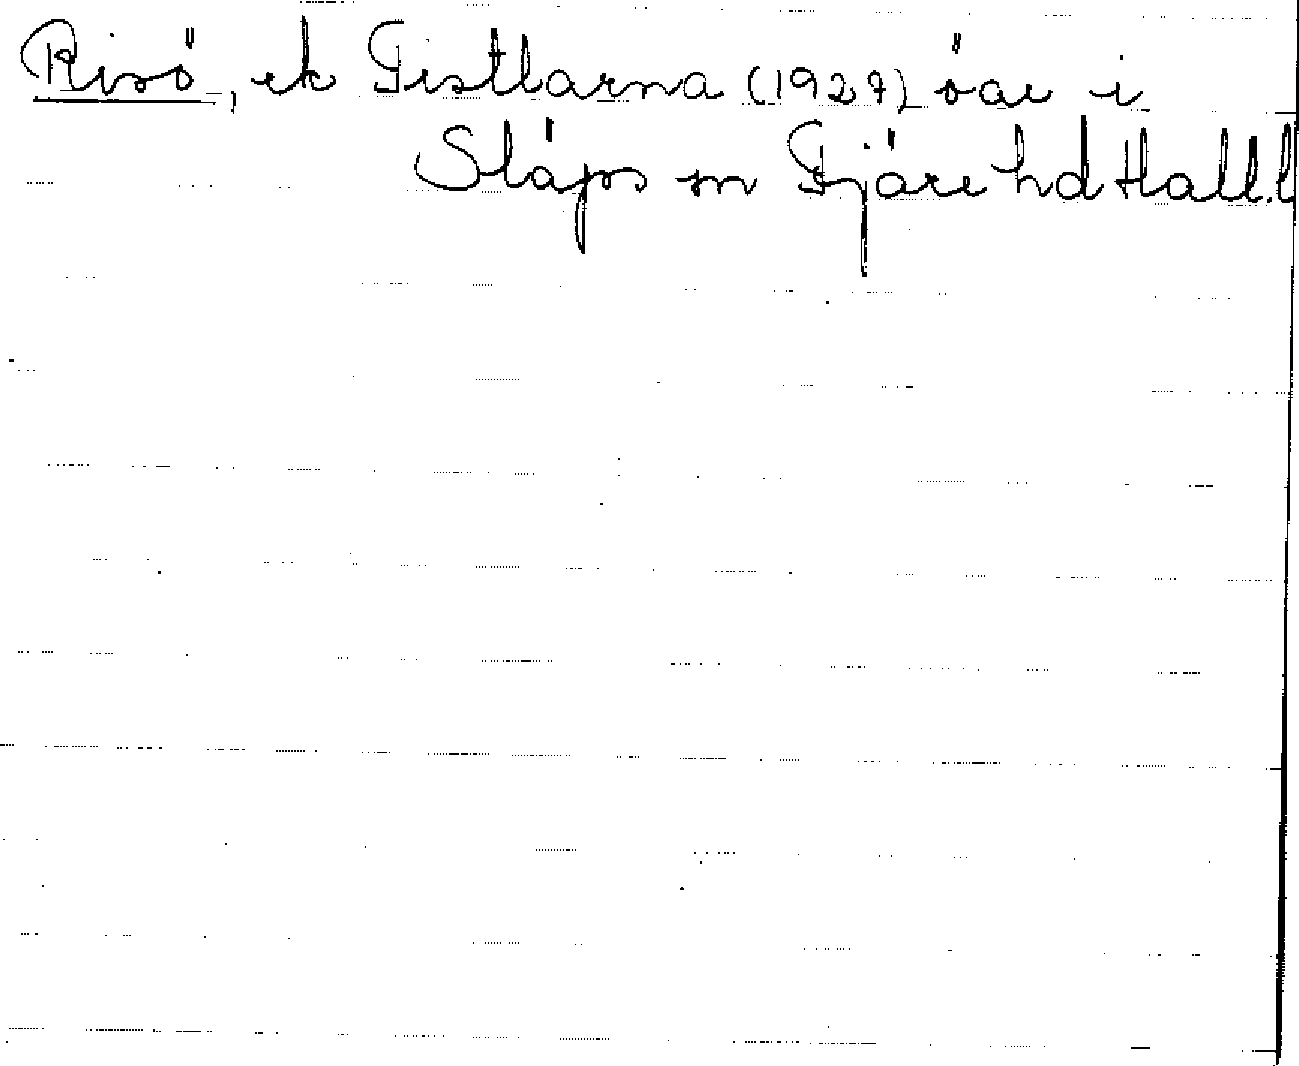 Risö, ek Tistlarna (1927) öar i
Släps sn Fjäre hd Hall.l